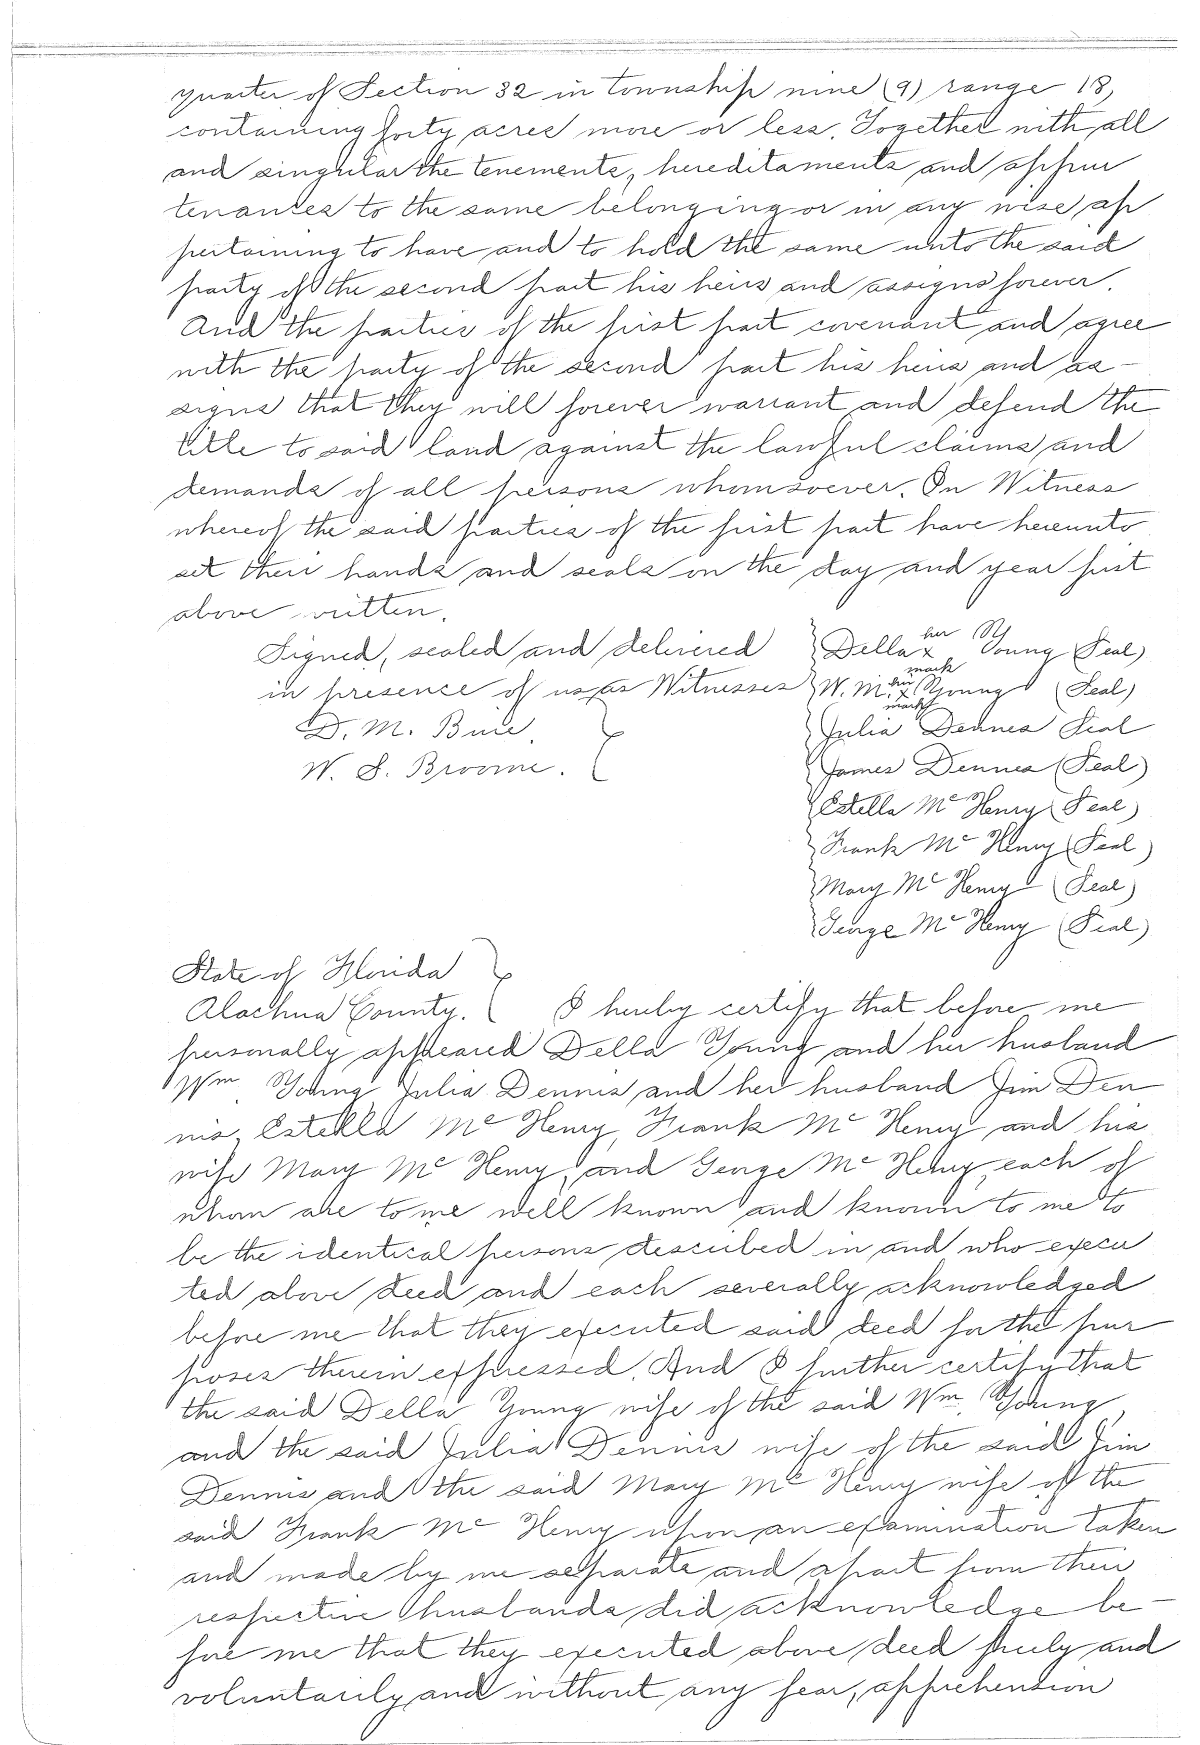 quarter of Section 32 in township nine (9) range 18,
containing forty acres more or less. Together with all
and singular the tenements, hereditaments and appur
tenances to the same belonging or in any wise ap
pertaining to have and to hold the same unto the said
party of the second part his heirs and assigns forever.
And the parties of the first part covenant and agree
with the party of the second part his heirs and as-
signs that they will forever warrant and defend the
title to said land against the lawful claims and
demands of all persons whomsoever. In Witness
whereof the said parties of the first part have hereunto
set their hands and seals on the day and year first
above written.
Signed, sealed and delivered
in presence of us as Witnesses
D. M. Buie
W. S. Broome.
Della her x mark Young (Seal)
W. M. his x mark Young (Seal)
Julia Dennes Seal
James Dennes (Seal)
Estella Mc Henry (Seal)
Frank Mc Henry (Seal)
Mary Mc Henry (Seal)
George Mc Henry (Seal)
State of Florida
Alachua County. I hereby certify that before me
personally appeared Della Young and her husband
Wm Young Julia Dennis and her husband Jim Den
nis, Estella Mc Henry, Frank Mc Henry and his
wife Mary Mc Henry, and George Mc Henry each of
whom are to me well known and known to me to
be the identical persons described in and who execu
ted above deed and each severally acknowledged
before me that they executed said deed for the pur
poses therein expressed. And I further certify that
the said Della Young wife of the said Wm. Young,
and the said Julia Dennis wife of the said Jim
Dennis and the said Mary Mc Henry wife of the
said Frank Mc Henry upon an examination taken
and made by me separate and apart from their
respective husbands did acknowledge be-
fore me that they executed above deed freely and
voluntarily and without any fear, apprehension